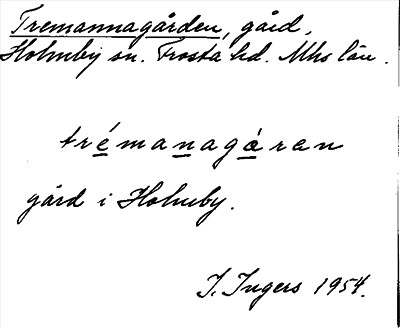 Tremannagården, gård,
Holmby sn. Frosta hd. Mhs län.
trémanagåran
gård i Holmby.
I. Ingers 1954.